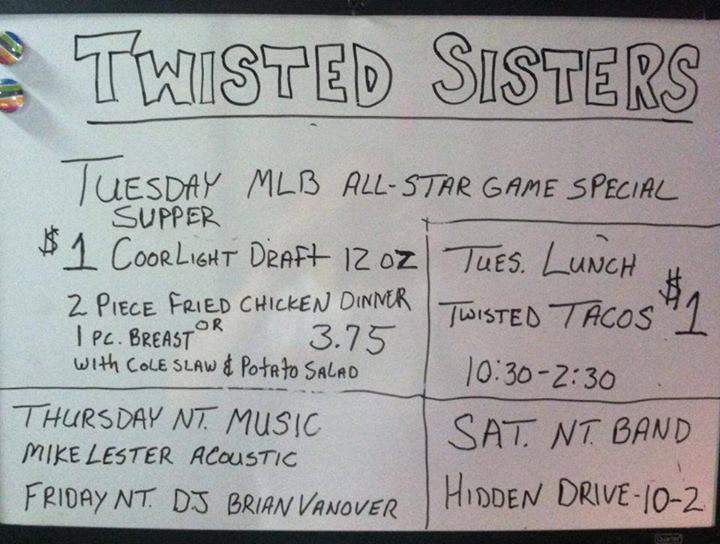 TWISTED SISTERS
TUESDAY MLB ALL-STAR GAME SPECIAL
SUPPER
$1 COORLIGHT DRAFT 12 OZ
2 PIECE FRIED CHICKEN DINNER
OR
1 PC. BREAST 3.75
with COLE SLAW & Potato SALAD
TUES. LUNCH
TWISTED TACOS $1
10:30-2:30
THURSDAY NT. MUSIC
MIKE LESTER ACOUSTIC
FRIDAY NT. DJ BRIAN VANOVER
SAT. NT. BAND
HIDDEN DRIVE-10-2